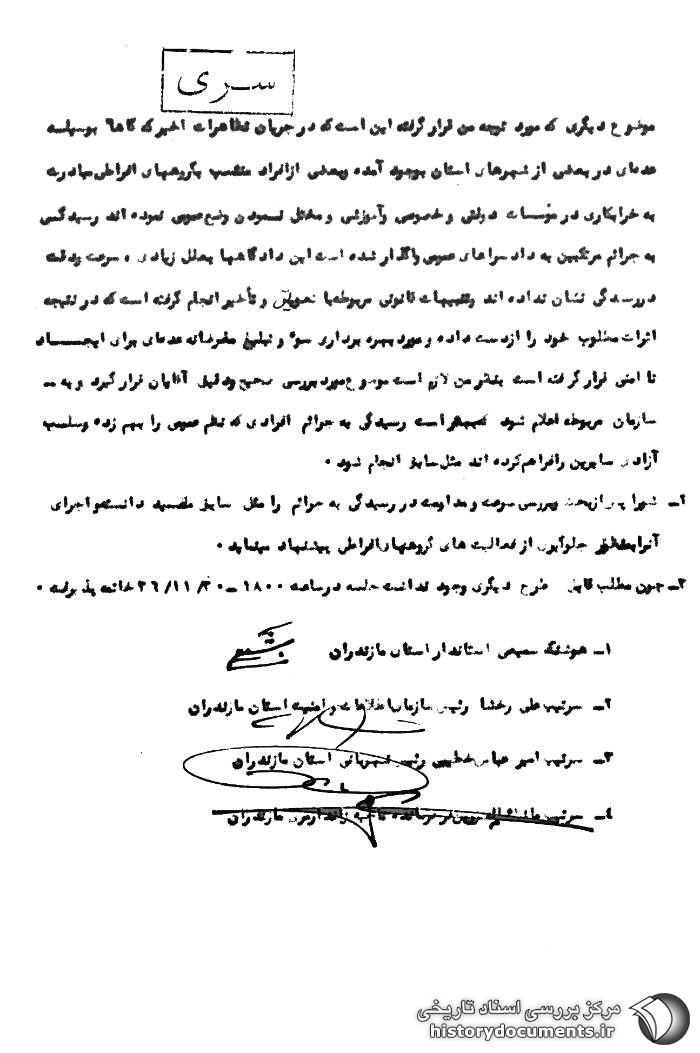 سری
موضوع دیگری که مورد توجه من قرار گرفته این است که در جریان تظاهرات اخیر که گاها بوسیله
عده‌ای در بعضی از شهرهای استان بوجود آمده وبعضی ازافراد منتسب بگروههای افراطی مبادرت
به خرابکاری در مؤسسات دولتی و خصوصی وآموزشی و مختل نمودن وضع عمومی نموده اند رسیدگی
به جرائم مرتکبین به داد سراهای عمومی واگذار شده است این دادگاهها بعلل زیادی ، سرعت ودقت
دررسیدگی نشان نداده اند وتعقیبات قانونی مربوطه با تعویق و تأخیر انجام گرفته است که در نتیجه
اثرات مطلوب خود را ازدست داده و مورد بهره برداری سوء و تبلیغ مغرضانه عده‌ای برای ایجـــاد
نا امنی قرار گرفته است بنظر من لازم است موضوع مورد بررسی صحیح ودقیق آقایان قرار گیرد و به ــ
سازمان مربوطه اعلام شود است رسیدگی به جرائم افرادی که نظم عمومی را بهم زده وسلب
آزادی سایرین رافراهم کرده اند مثل سابق انجام شود .
۲ـ شورا پس ازبحث وبررسی سرعت و مداومت در رسیدگی به جرائم را مثل سابق دانسته واجرای
آنرا بمنظور جلوگیری از فعالیت های گروههای افراطی پیشنهاد مینماید .
۳ـ چون مطلب قابل طرح دیگری وجود نداشت جلسه درساعت ۱۸۰۰ ـ ۳۶/۱۱/۲۰ خاتمه پذیرفت .
۱ـ هوشنگ سمیعی استاندار استان مازندران
۲ـ سرتیپ علی رخشا رئیس سازمان اطلاعات و امنیت استان مازندران
۳ـ سرتیپ امیر عباس خطیبی رئیس شهربانی استان مازندران
۴ـ سرتیپ فرمانده ناحیه ژاندارمری مازندران
مرکز بررسی اسناد تاریخی
historydocuments.ir